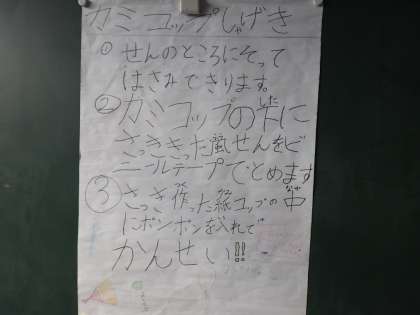 カミコップしゃげき
①せんのところにそって
はさみできります。
②カミコップの下にした
さっききった風せんをビ
ニールテープでとめます
③さっき作った紙コップの中
にポンポンを入れて
かんせい!!